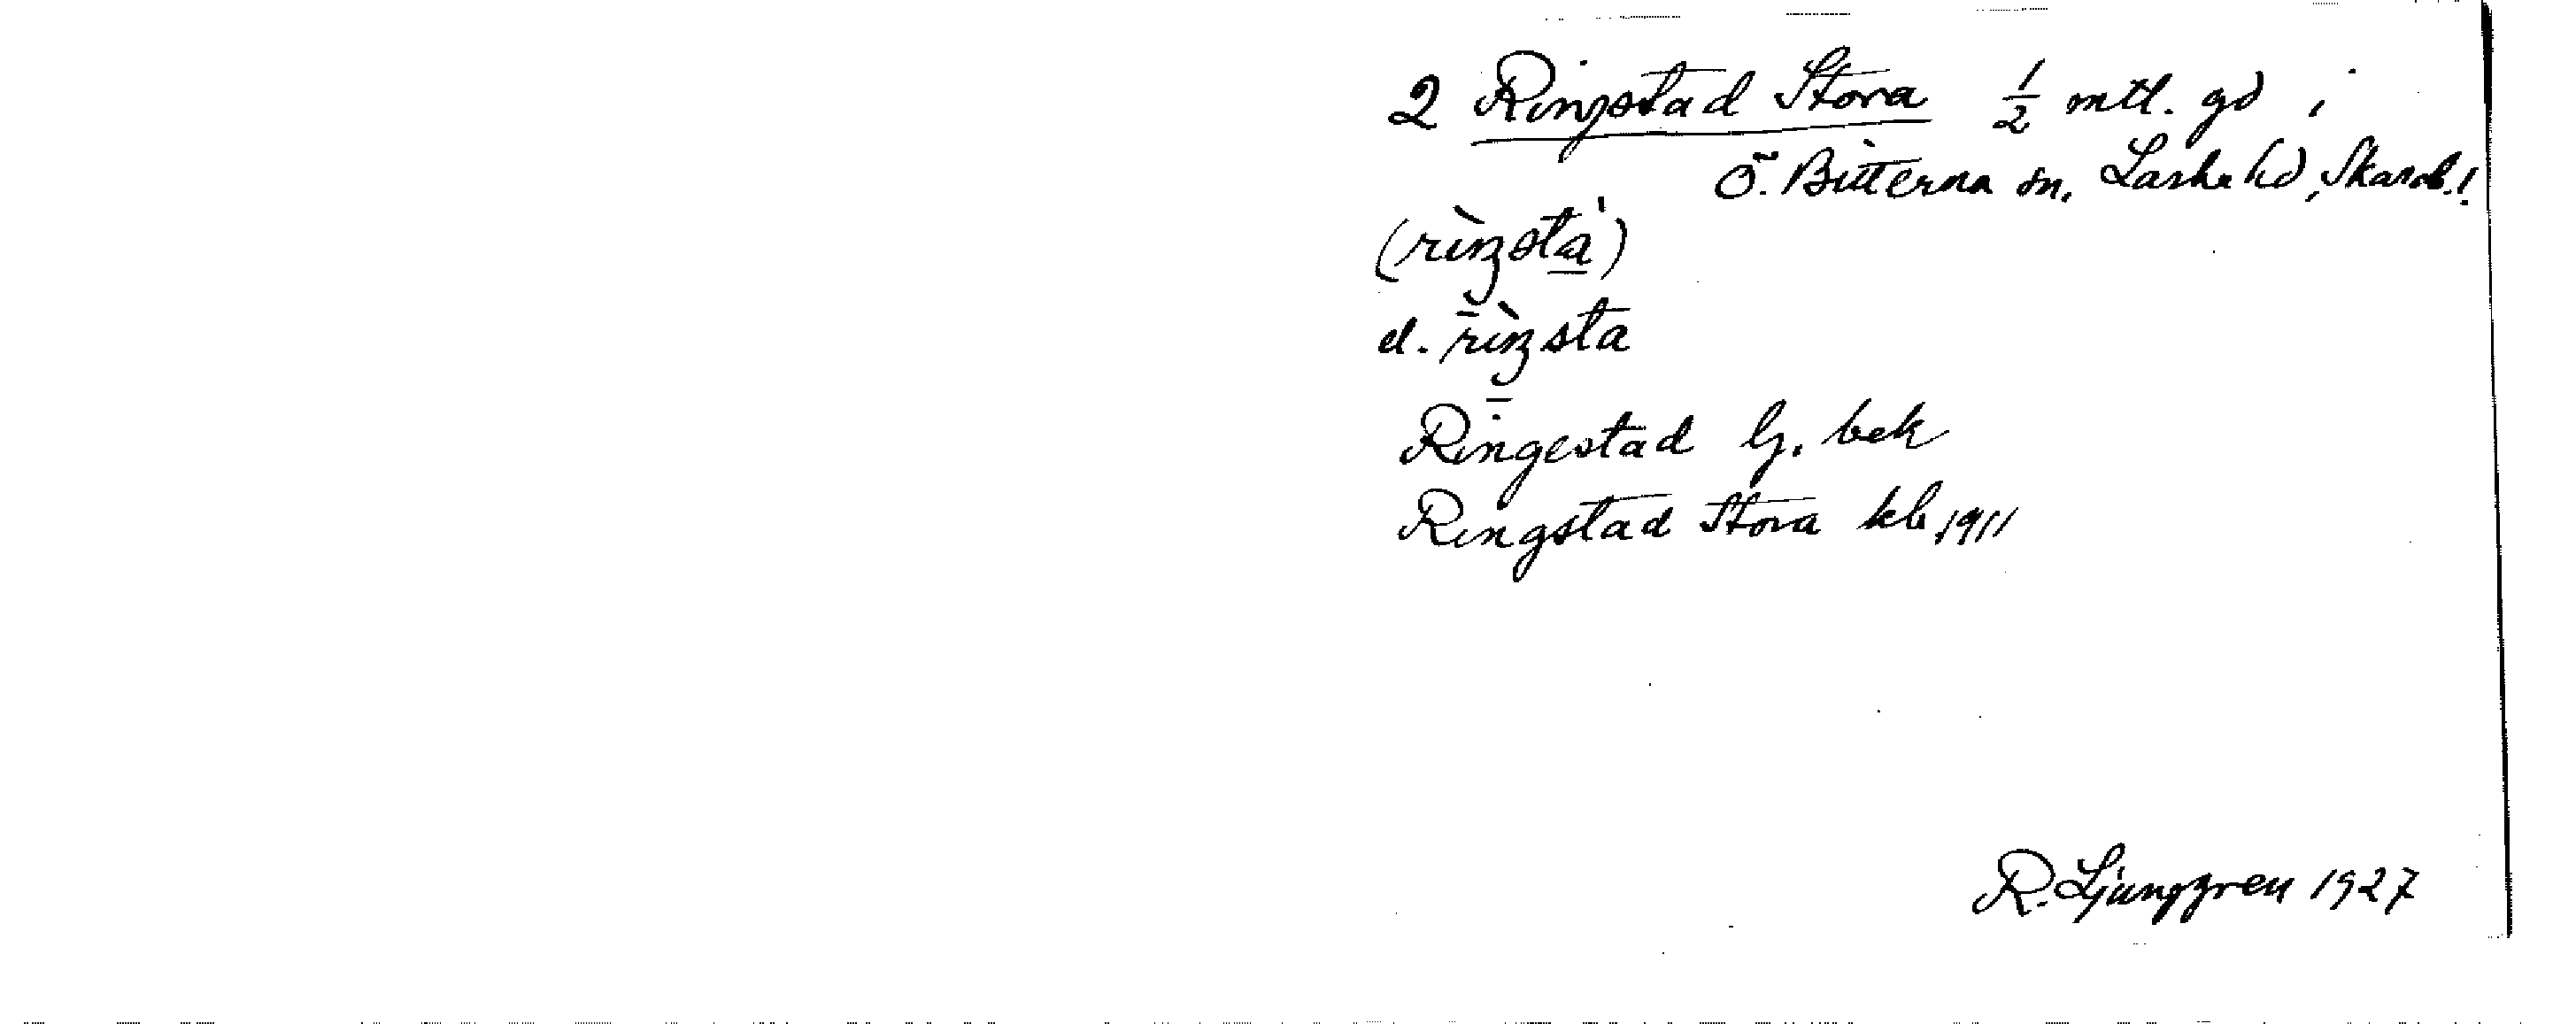 2 Ringstad Stora 1/2 mtl. gd i
Ö. Bitterna sn. Laske hd, Skarab.!
(rìŋstà)
el. rìŋsta
Ringestad Lj. bek
Ringstad Stora kb 1911
R. Ljunggren 1927